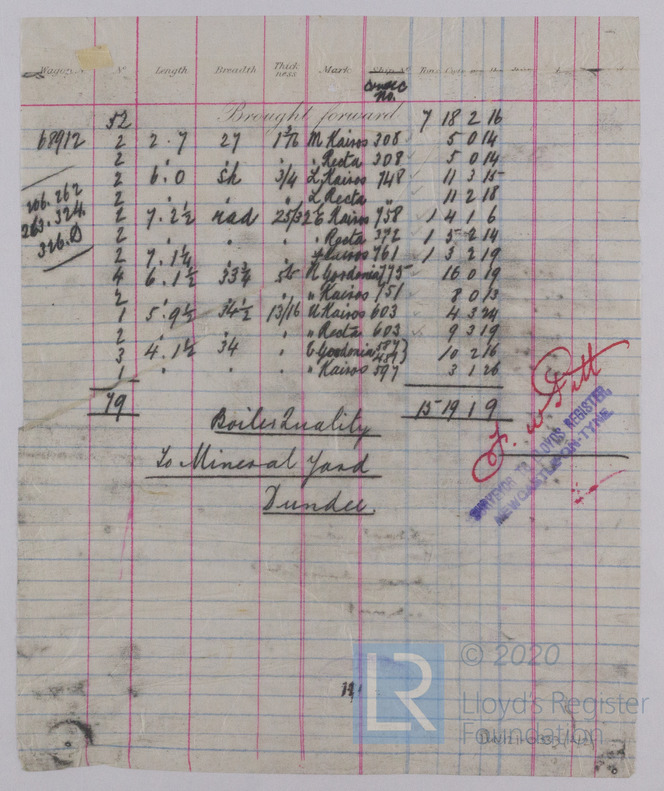 Nº Length Breadth Thick ness Mark Ship Nº Tons
Order No.
Brought forward
52 7 18 2 16
68912 2 2.7 27 1 3/16 M Kairos 308 5 0 14
2 " " " " Recta 308 5 0 14
2 6.0 Sk 3/4 L Kairos 748 11 3 15
2 " L Recta " 11 2 18
2 7.2½ rad 25/32 E Kairos 758 1 4 1 6
2 " " " " Recta 372 1 5 2 14
2 7.1¼ " " Kairos 761 1 3 2 19
4 6.1½ 33¾ 5/8 R Goodonia 775 16 0 19
2 " " " " Kairos 751 8 0 13
1 5.9½ 34½ 13/16 U Kairos 603 4 3 24
2 " " " " Recta 603 9 3 19
3 4.1½ 34 " E Goodonia 587 484} 10 2 16
1 " " " " Kairos 597 3 1 26
206.262
263.324.
326.D
79 15 19 1 9
Boiler Quality
To Mineral Yard
Dundee.
F. W. Pitt
SURVEYOR TO LLOYDS REGISTER,
NEWCASTLE-ON-TYNE
LR
© 2020
Lloyd's Register
Foundation